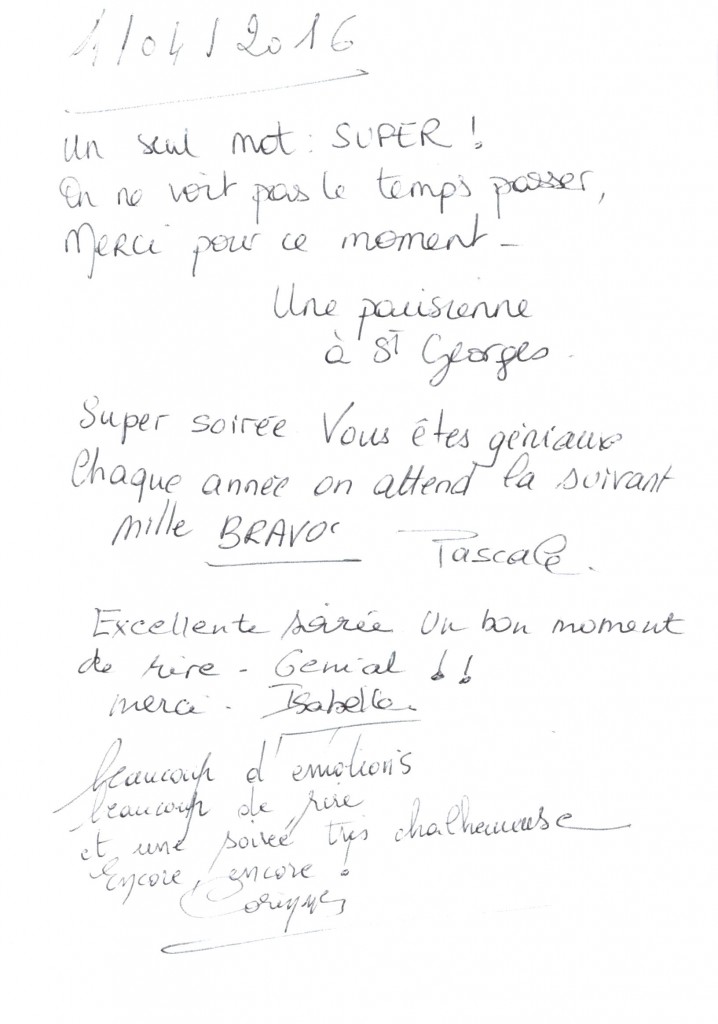 1/04/2016
Un seul mot : SUPER !
On ne voit pas le temps passer,
Merci pour ce moment -
Une parisienne
à St Georges.
Super soirée Vous êtes géniaux
Chaque année on attend la suivant
Mille BRAVO
Pascale.
Excellente soirée Un bon moment
de rire - Genial !!
merci - Isabelle
beaucoup d'emotions
beaucoup de rire
et une soirée très chalheureuse
Encore, encore !